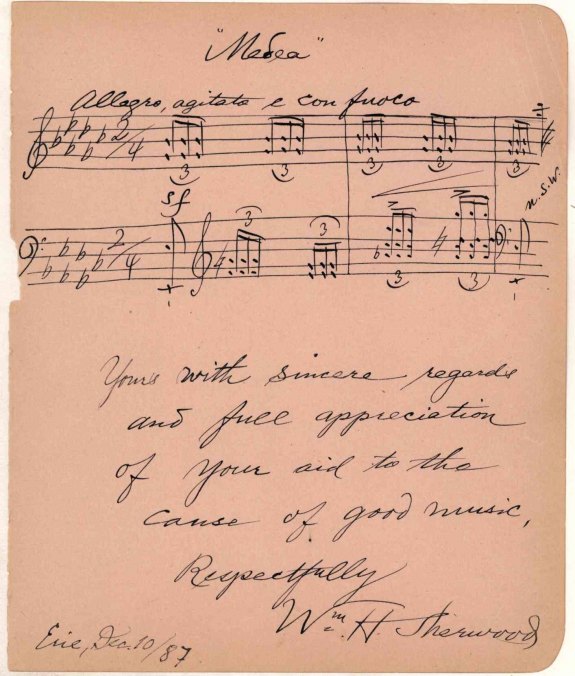 "Medea"
Allegro, agitato e con fuoco
2/4
3 3 3 3 3
sf
3 3
2/4
3 3
W.S.W.
Yours with sincere regards
and full appreciation
of your aid to the
cause of good music,
Respectfully
Wm. H. Sherwood
Erie, Dec. 10/87